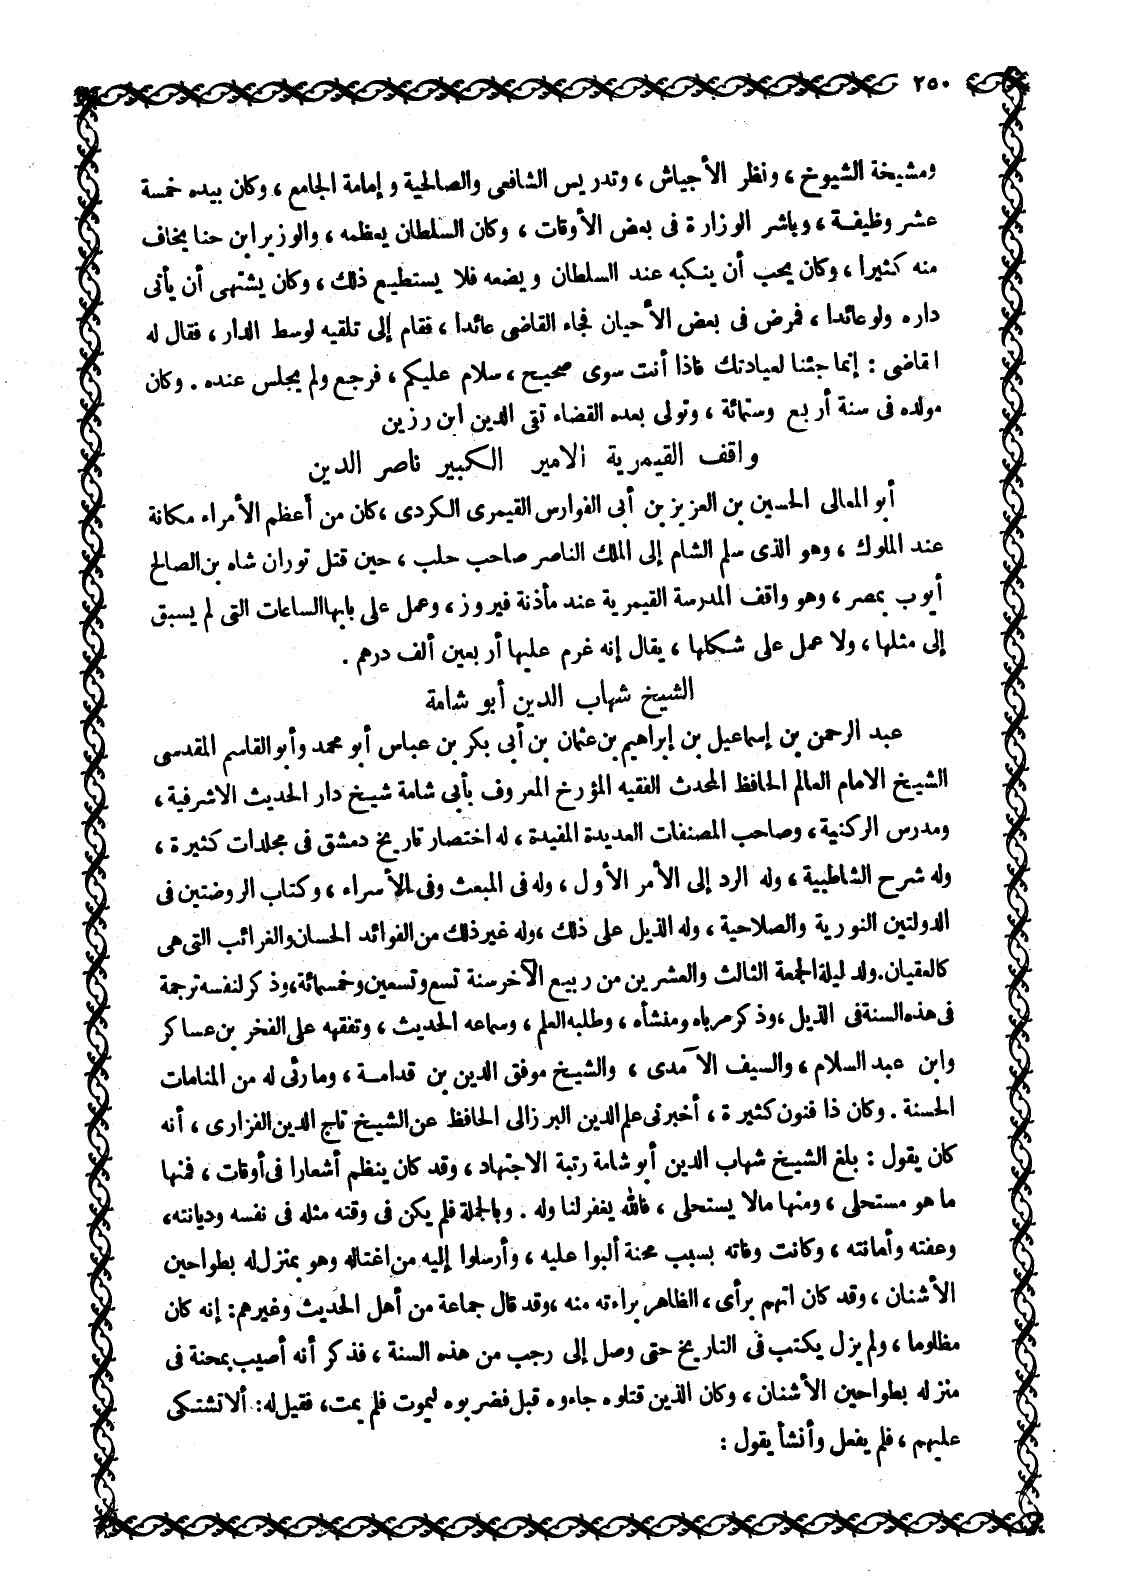 ٢٥٠
ومشيخة الشيوخ ، ونظر الأجياش ، وتدريس الشافعى والصالحية و إمامة الجامع ، وكان بيده خمسة
عشر وظيفة ، وباشر الوزارة فى بعض الأوقات ، وكان السلطان يعظمه ، والوزير ابن حنا يخاف
منه كثيرا ، وكان يحب أن ينكبه عند السلطان ويضعه فلا يستطيع ذلك ، وكان يشتهى أن يأتى
داره ولو عائدا ، فمرض فى بعض الأحيان فجاء القاضى عائدا ، فقام إلى تلقيه لوسط الدار ، فقال له
القاضى : إنما جئنا لعيادتك فاذا أنت سوى صحيح ، سلام عليكم ، فرجع ولم يجلس عنده . وكان
مولده فى سنة أربع وستمائة ، وتولى بعده القضاء تقى الدين ابن رزين
واقف القيمرية الامير الكبير ناصر الدين
أبو المعالى الحسين بن العزيز بن أبى الفوارس القيمرى الكردى ، كان من أعظم الأمراء مكانة
عند الملوك ، وهو الذى سلم الشام إلى الملك الناصر صاحب حلب ، حين قتل توران شاه بن الصالح
أيوب بمصر ، وهو واقف المدرسة القيمرية عند مأذنة فيروز ، وعمل على بابها الساعات التى لم يسبق
إلى مثلها ، ولا عمل على شكلها ، يقال إنه غرم عليها أربعين ألف درهم .
الشيخ شهاب الدين أبو شامة
عبد الرحمن بن إسماعيل بن إبراهيم بن عثمان بن أبى بكر بن عباس أبو محمد وأبو القاسم المقدسى
الشيخ الامام العالم الحافظ المحدث الفقيه المؤرخ المعروف بأبى شامة شيخ دار الحديث الاشرفية ،
ومدرس الركنية ، وصاحب المصنفات العديدة المفيدة ، له اختصار تاريخ دمشق فى مجلدات كثيرة ،
وله شرح الشاطبية ، وله الرد إلى الأمر الأول ، وله فى المبعث وفى الأسراء ، وكتاب الروضتين فى
الدولتين النورية والصلاحية ، وله الذيل على ذلك ، وله غير ذلك من الفوائد الحسان والغرائب التى هى
كالعقيان. ولد ليلة الجمعة الثالث والعشرين من ربيع الآخر سنة تسع وتسعين وخمسمائة، وذكر لنفسه ترجمة
فى هذه السنة فى الذيل ، وذكر مرباه ومنشأه ، وطلبه العلم ، وسماعه الحديث ، وتفقهه على الفخر بن عساكر
وابن عبد السلام ، والسيف الآمدى ، والشيخ موفق الدين بن قدامة ، وما رئى له من المنامات
الحسنة . وكان ذا فنون كثيرة ، أخبرنى علم الدين البرزالى الحافظ عن الشيخ تاج الدين الفزارى ، أنه
كان يقول : بلغ الشيخ شهاب الدين أبو شامة رتبة الاجتهاد ، وقد كان ينظم أشعارا فى أوقات ، فمنها
ما هو مستحلى ، ومنها مالا يستحلى ، فالله يغفر لنا وله . وبالجملة فلم يكن فى وقته مثله فى نفسه وديانته،
وعفته وأمانته ، وكانت وفاته بسبب محنة ألبوا عليه ، وأرسلوا إليه من اغتاله وهو بمنزل له بطواحين
الأشنان ، وقد كان اتهم برأى ، الظاهر براءته منه ، وقد قال جماعة من أهل الحديث وغيرهم: إنه كان
مظلوما ، ولم يزل يكتب فى التاريخ حتى وصل إلى رجب من هذه السنة ، فذكر أنه أصيب بمحنة فى
منزله بطواحين الأشنان ، وكان الذين قتلوه جاءوه قبل فضربوه ليموت فلم يمت، فقيل له: ألا تشتكى
عليهم ، فلم يفعل وأنشأ يقول :